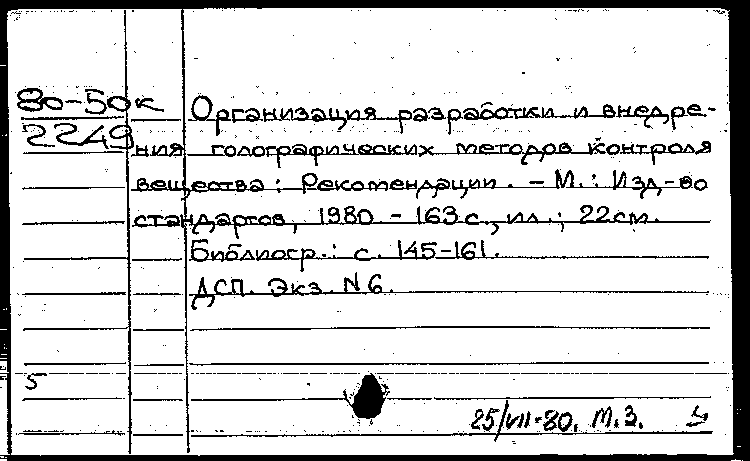 80-50к Организация разработки и внедре-
2249 ния голографических методов контроля
вещества: Рекомендации. - М.: Изд-во
стандартов, 1980 - 163 с., ил.; 22 см.
Библиогр.: с. 145-161.
ДСП. Экз. N 6.
5
25/VII-80. М.З.